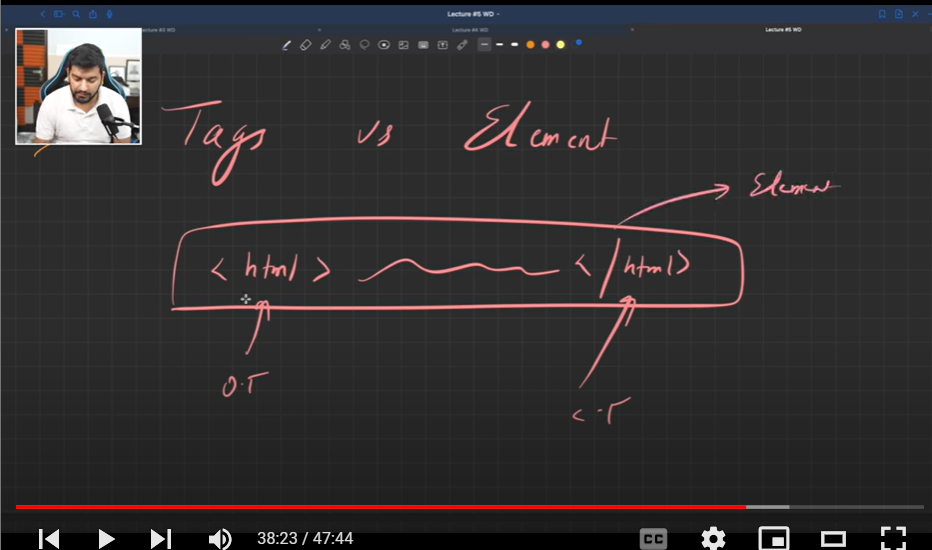 Lecture #5 WD
Lecture #3 WD
Lecture #4 WD
Lecture #5 WD
Tags vs Element
Element
< html > </html>
O.T
C.T
38:23 / 47:44
CC